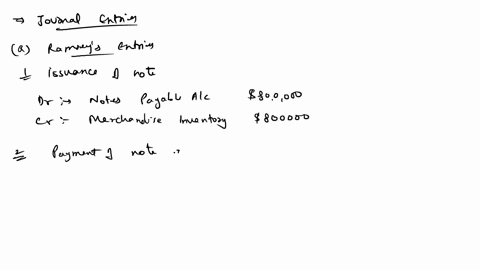 → Journal Entries
(a) Ramsey's Entries
1 issuance of note
Dr :- Notes Payable A/c $800,000
Cr :- Merchandise Inventory $800000
2 Payment of note :